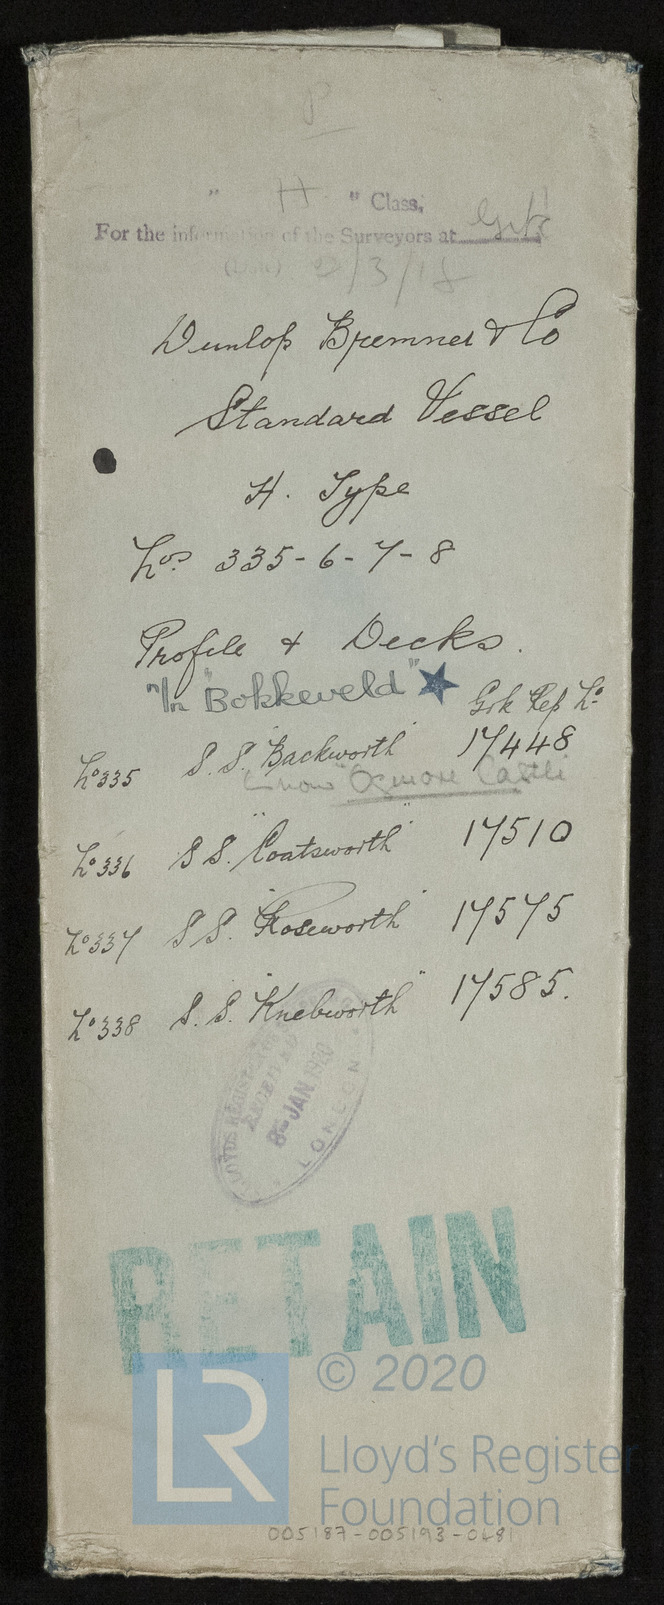 P
" H. " Class,
For the information of the Surveyors at Grk
(Date) 2/3/18
Dunlop Bremner & Co
Standard Vessel
H. Type
Nos. 335-6-7-8
Profile & Decks.
"In "Bokkeveld" ★
Grk Rep No.
No 335 S.S. "Backworth" 17448
now "Ogmore Castle
No 336 S.S. "Coatsworth" 17510
No 337 S.S. "Roseworth" 17575
No 338 S.S. "Knebworth" 17585.
LLOYDS REGISTER
RECEIVED
8 JAN 1920
LONDON
RETAIN
© 2020
LR
Lloyd's Register
Foundation
005187-005193-0681